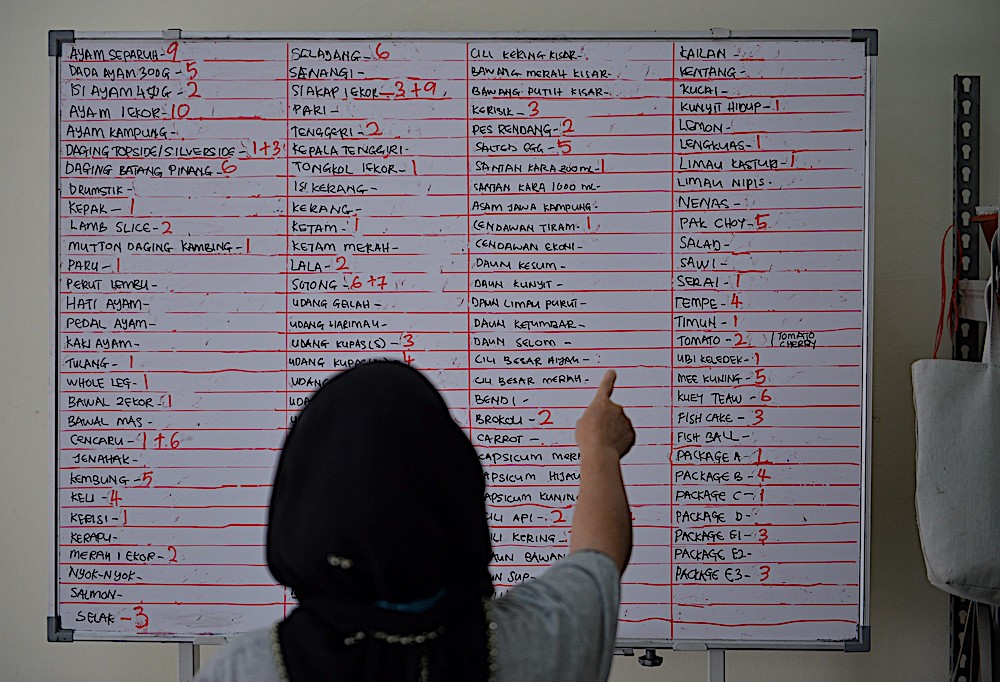 AYAM SEPARUH - 9
DADA AYAM 300G - 5
ISI AYAM 400G - 2
AYAM 1EKOR - 10
AYAM KAMPUNG -
DAGING TOPSIDE/SILVERSIDE - 1+3
DAGING BATANG PINANG - 6
DRUMSTIK -
KEPAK - 1
LAMB SLICE - 2
MUTTON DAGING KAMBING - 1
PARU - 1
PERUT LEMBU -
HATI AYAM -
PEDAL AYAM -
KAKI AYAM -
TULANG - 1
WHOLE LEG - 1
BAWAL 2EKOR - 1
BAWAL MAS -
CENCARU - 1+6
JENAHAK -
KEMBUNG - 5
KELI - 4
KERISI - 1
KERAPU -
MERAH 1EKOR - 2
NYOK-NYOK -
SALMON -
SELAK - 3
SELAYANG - 6
SENANGI -
SIAKAP 1EKOR - 3+9
PARI -
TENGGERI - 2
KEPALA TENGGIRI -
TONGKOL 1EKOR - 1
ISI KERANG -
KERANG -
KETAM - 1
KETAM MERAH -
LALA - 2
SOTONG - 6+7
UDANG GALAH -
UDANG HARIMAU -
UDANG KUPAS(S) - 3
UDANG 4
UDANG
CILI KERING KISAR -
BAWANG MERAH KISAR -
BAWANG PUTIH KISAR -
KERISIK - 3
PES RENDANG - 2
SALTED EGG - 5
SANTAN KARA 200ML - 1
SANTAN KARA 1000 ML -
ASAM JAWA KAMPUNG -
CENDAWAN TIRAM - 1
CENDAWAN ENOKI -
DAUN KESUM -
DAUN KUNYIT -
DAUN LIMAU PURUT -
DAUN KETUMBAR -
DAUN SELOM -
CILI BESAR HIJAU -
CILI BESAR MERAH -
BENDI -
BROKOLI - 2
CARROT -
CAPSICUM
CAPSICUM HIJAU
CAPSICUM KUNING
CILI API - 2
CILI KERING -
DAUN
SUP -
KAILAN -
KENTANG -
KUCAI -
KUNYIT HIDUP - 1
LEMON -
LENGKUAS - 1
LIMAU KASTURI - 1
LIMAU NIPIS -
NENAS -
PAK CHOY - 5
SALAD -
SAWI -
SERAI - 1
TEMPE - 4
TIMUN - 1
TOMATO - 2 / TOMATO CHERRY
UBI KELEDEK - 1
MEE KUNING - 5
KUEY TEAW - 6
FISH CAKE - 3
FISH BALL -
PACKAGE A - 1
PACKAGE B - 4
PACKAGE C - 1
PACKAGE D -
PACKAGE E1 - 3
PACKAGE E2 -
PACKAGE E3 - 3